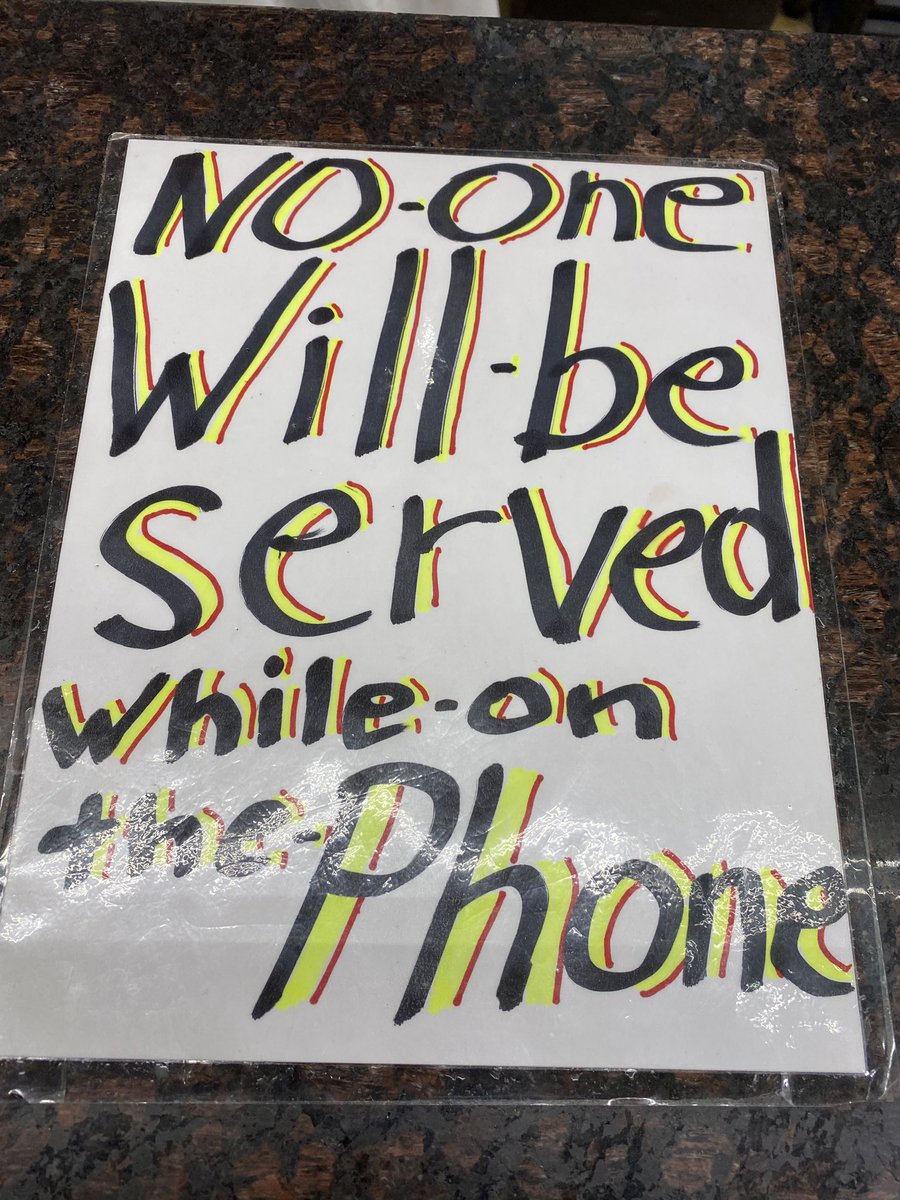 NO-One
Will-be
served
while-on
the-Phone